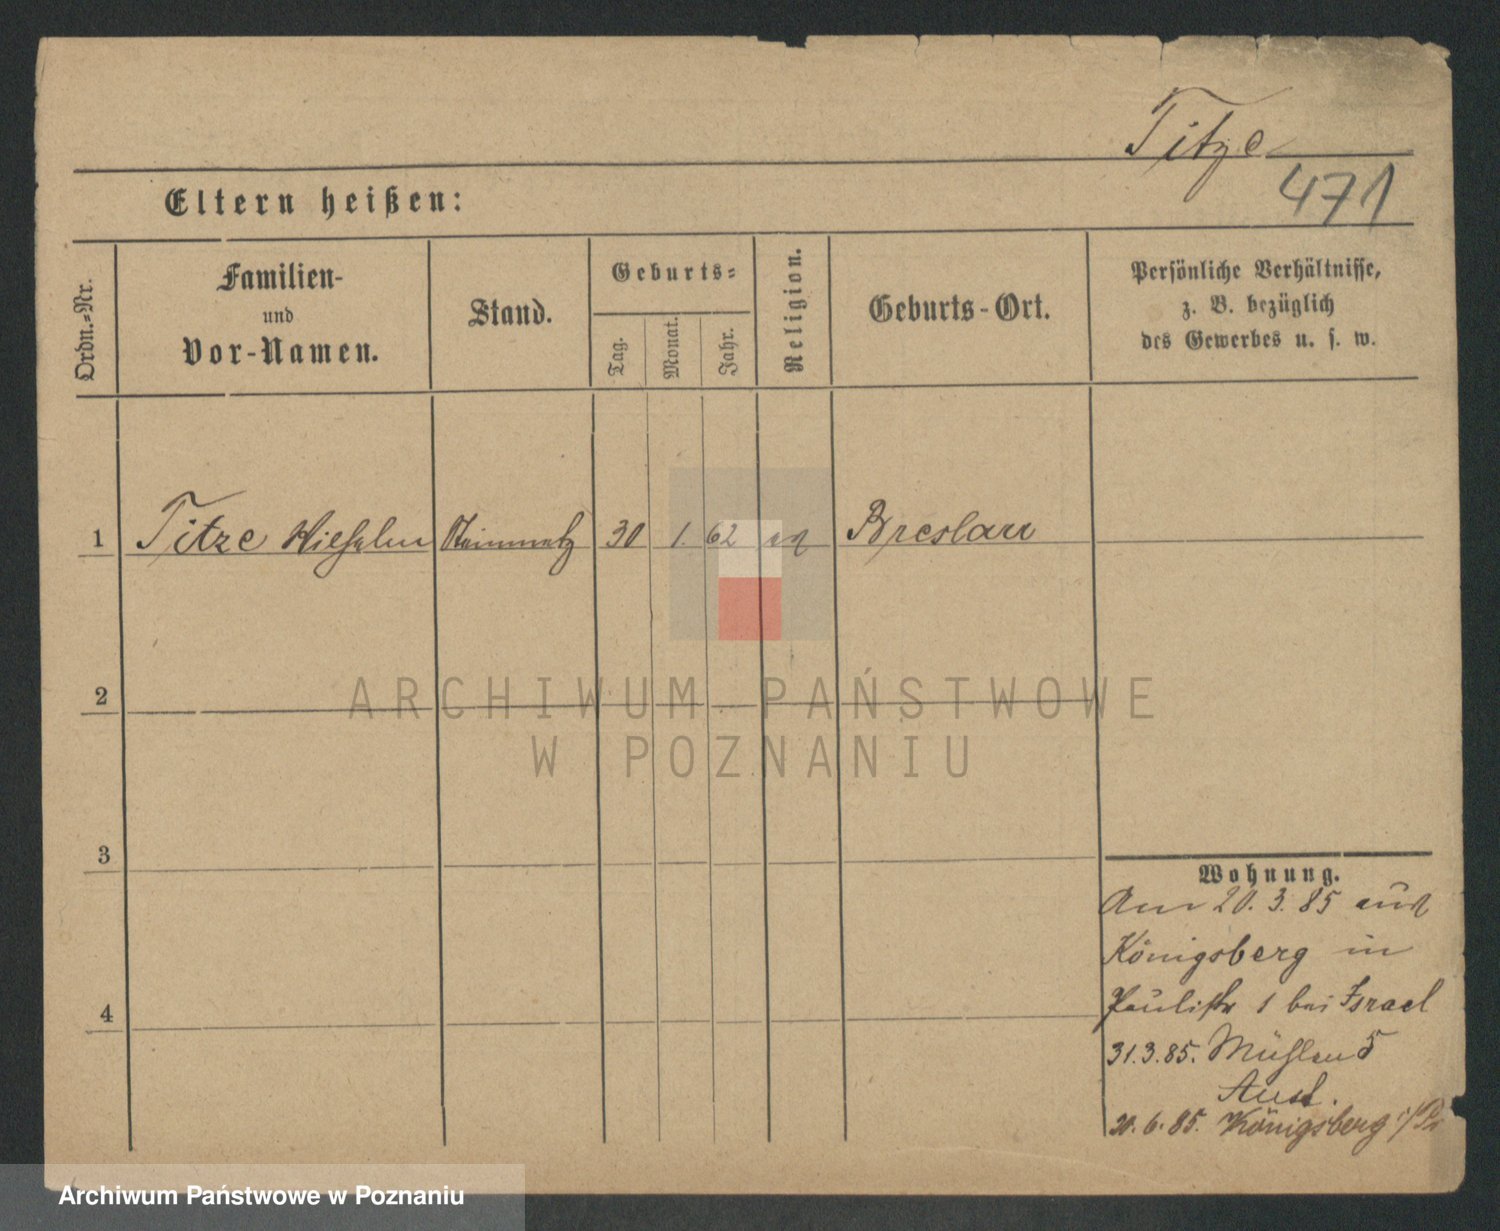 Titze
471
Eltern heißen:
Ordn.-Nr.
Familien-
und
Vor-Namen.
Stand.
Geburts-
Tag.
Monat.
Jahr.
Religion.
Geburts-Ort.
Persönliche Verhältnisse,
z. B. bezüglich
des Gewerbes u. s. w.
1 Titze Wilhelm Steinmetz 30 1. 62 Breslau
2
3
4
Wohnung.
Am 20. 3. 85 aus
Königsberg in
Paulistr 1 bei Israel
31.3.85. Mühlen 5
20. 6. 85. Königsberg i/Pr
ARCHIWUM PAŃSTWOWE
W POZNANIU
Archiwum Państwowe w Poznaniu